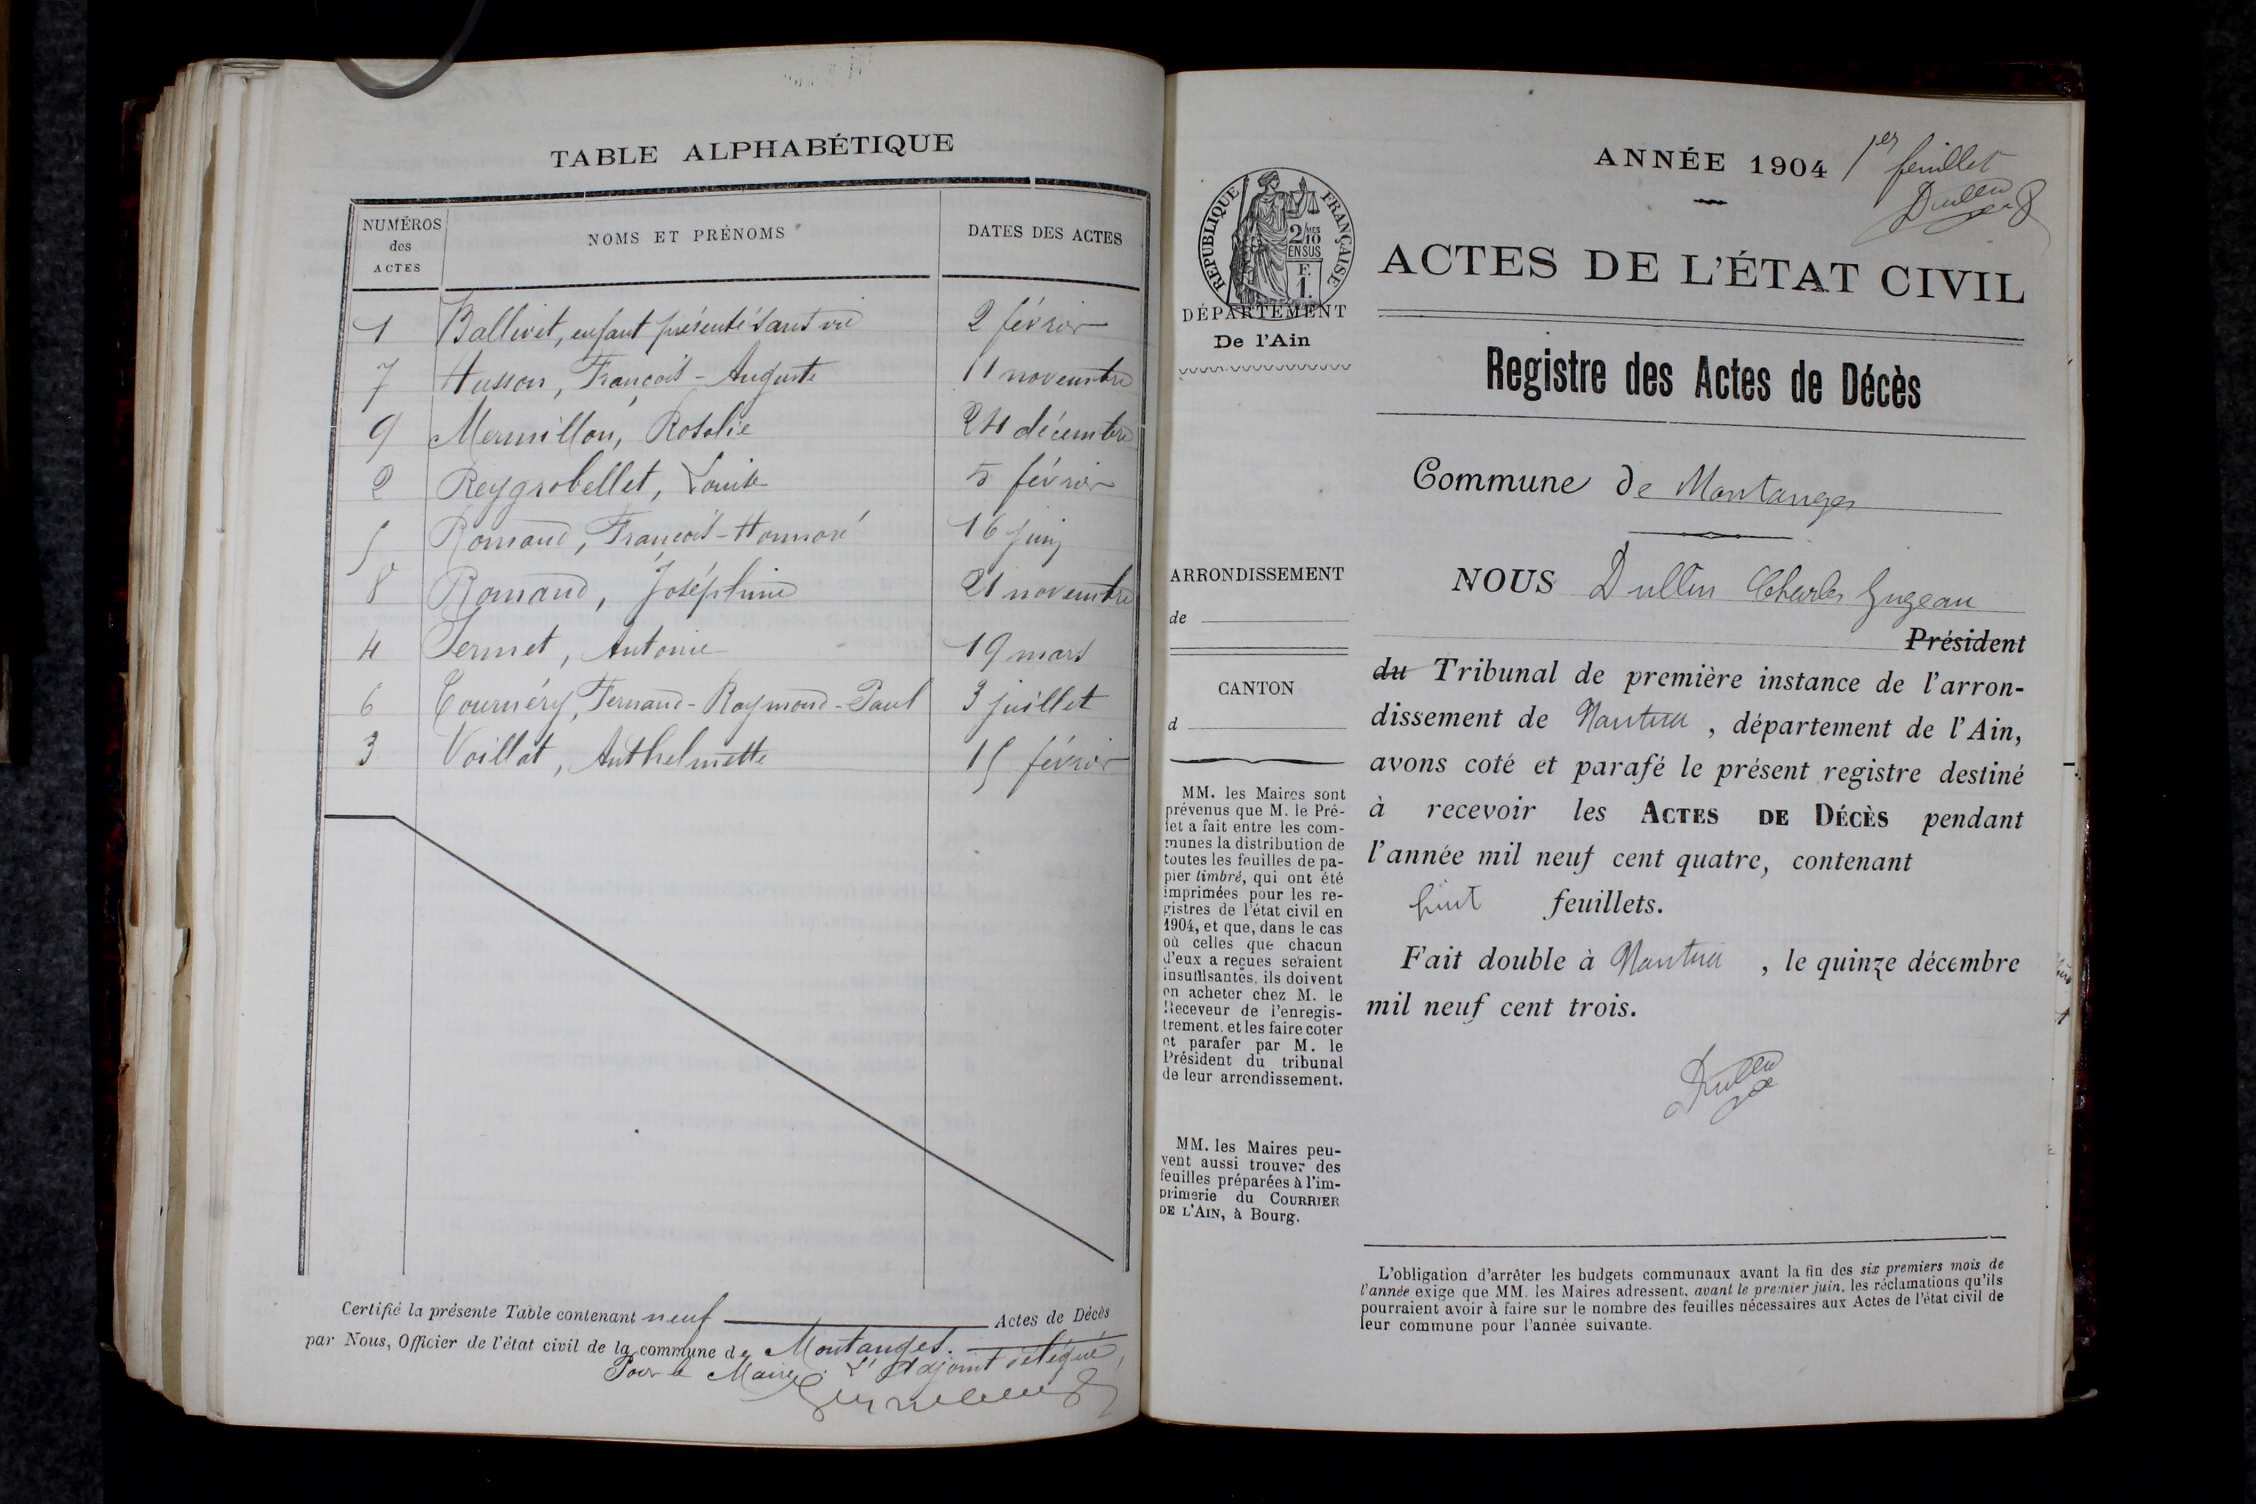 TABLE ALPHABÉTIQUE
NUMÉROS des ACTES
NOMS ET PRÉNOMS
DATES DES ACTES
1 Ballivet, enfant présenté sans vie 2 février
7 Husson, François-Auguste 11 novembre
9 Mermillon, Rosalie 24 décembre
2 Reygrobellet, Louise 5 février
5 Romand, François-Honnoré 16 juin
8 Romand, Joséphine 21 novembre
4 Sermet, Antoine 19 mars
6 Tournéry, Fernand-Raymond-Paul 3 juillet
3 Voillat, Anthelmette 15 février
Certifié la présente Table contenant neuf Actes de Décès
par Nous, Officier de l'état civil de la commune de Montanges.
Pour le Maire, L'Adjoint délégué,
ANNÉE 1904
1er feuillet
Dullin
RÉPUBLIQUE FRANÇAISE
2/10 MES
EN SUS
F.
1.
DÉPARTEMENT
De l'Ain
ARRONDISSEMENT
de
CANTON
d
MM. les Maires sont
prévenus que M. le Pré-
fet a fait entre les com-
munes la distribution de
toutes les feuilles de pa-
pier timbré, qui ont été
imprimées pour les re-
gistres de l'état civil en
1904, et que, dans le cas
où celles que chacun
d'eux a reçues seraient
insuffisantes, ils doivent
en acheter chez M. le
Receveur de l'enregis-
trement, et les faire coter
et parafer par M. le
Président du tribunal
de leur arrondissement.
MM. les Maires peu-
vent aussi trouver des
feuilles préparées à l'im-
primerie du COURRIER
DE L'AIN, à Bourg.
ACTES DE L'ÉTAT CIVIL
Registre des Actes de Décès
Commune de Montanges
NOUS Dullin Charles Eugeau
Président
du Tribunal de première instance de l'arron-
dissement de Nantua, département de l'Ain,
avons coté et parafé le présent registre destiné
à recevoir les ACTES DE DÉCÈS pendant
l'année mil neuf cent quatre, contenant
huit feuillets.
Fait double à Nantua, le quinze décembre
mil neuf cent trois.
Dullin
L'obligation d'arrêter les budgets communaux avant la fin des six premiers mois de
l'année exige que MM. les Maires adressent, avant le premier juin, les réclamations qu'ils
pourraient avoir à faire sur le nombre des feuilles nécessaires aux Actes de l'état civil de
leur commune pour l'année suivante.